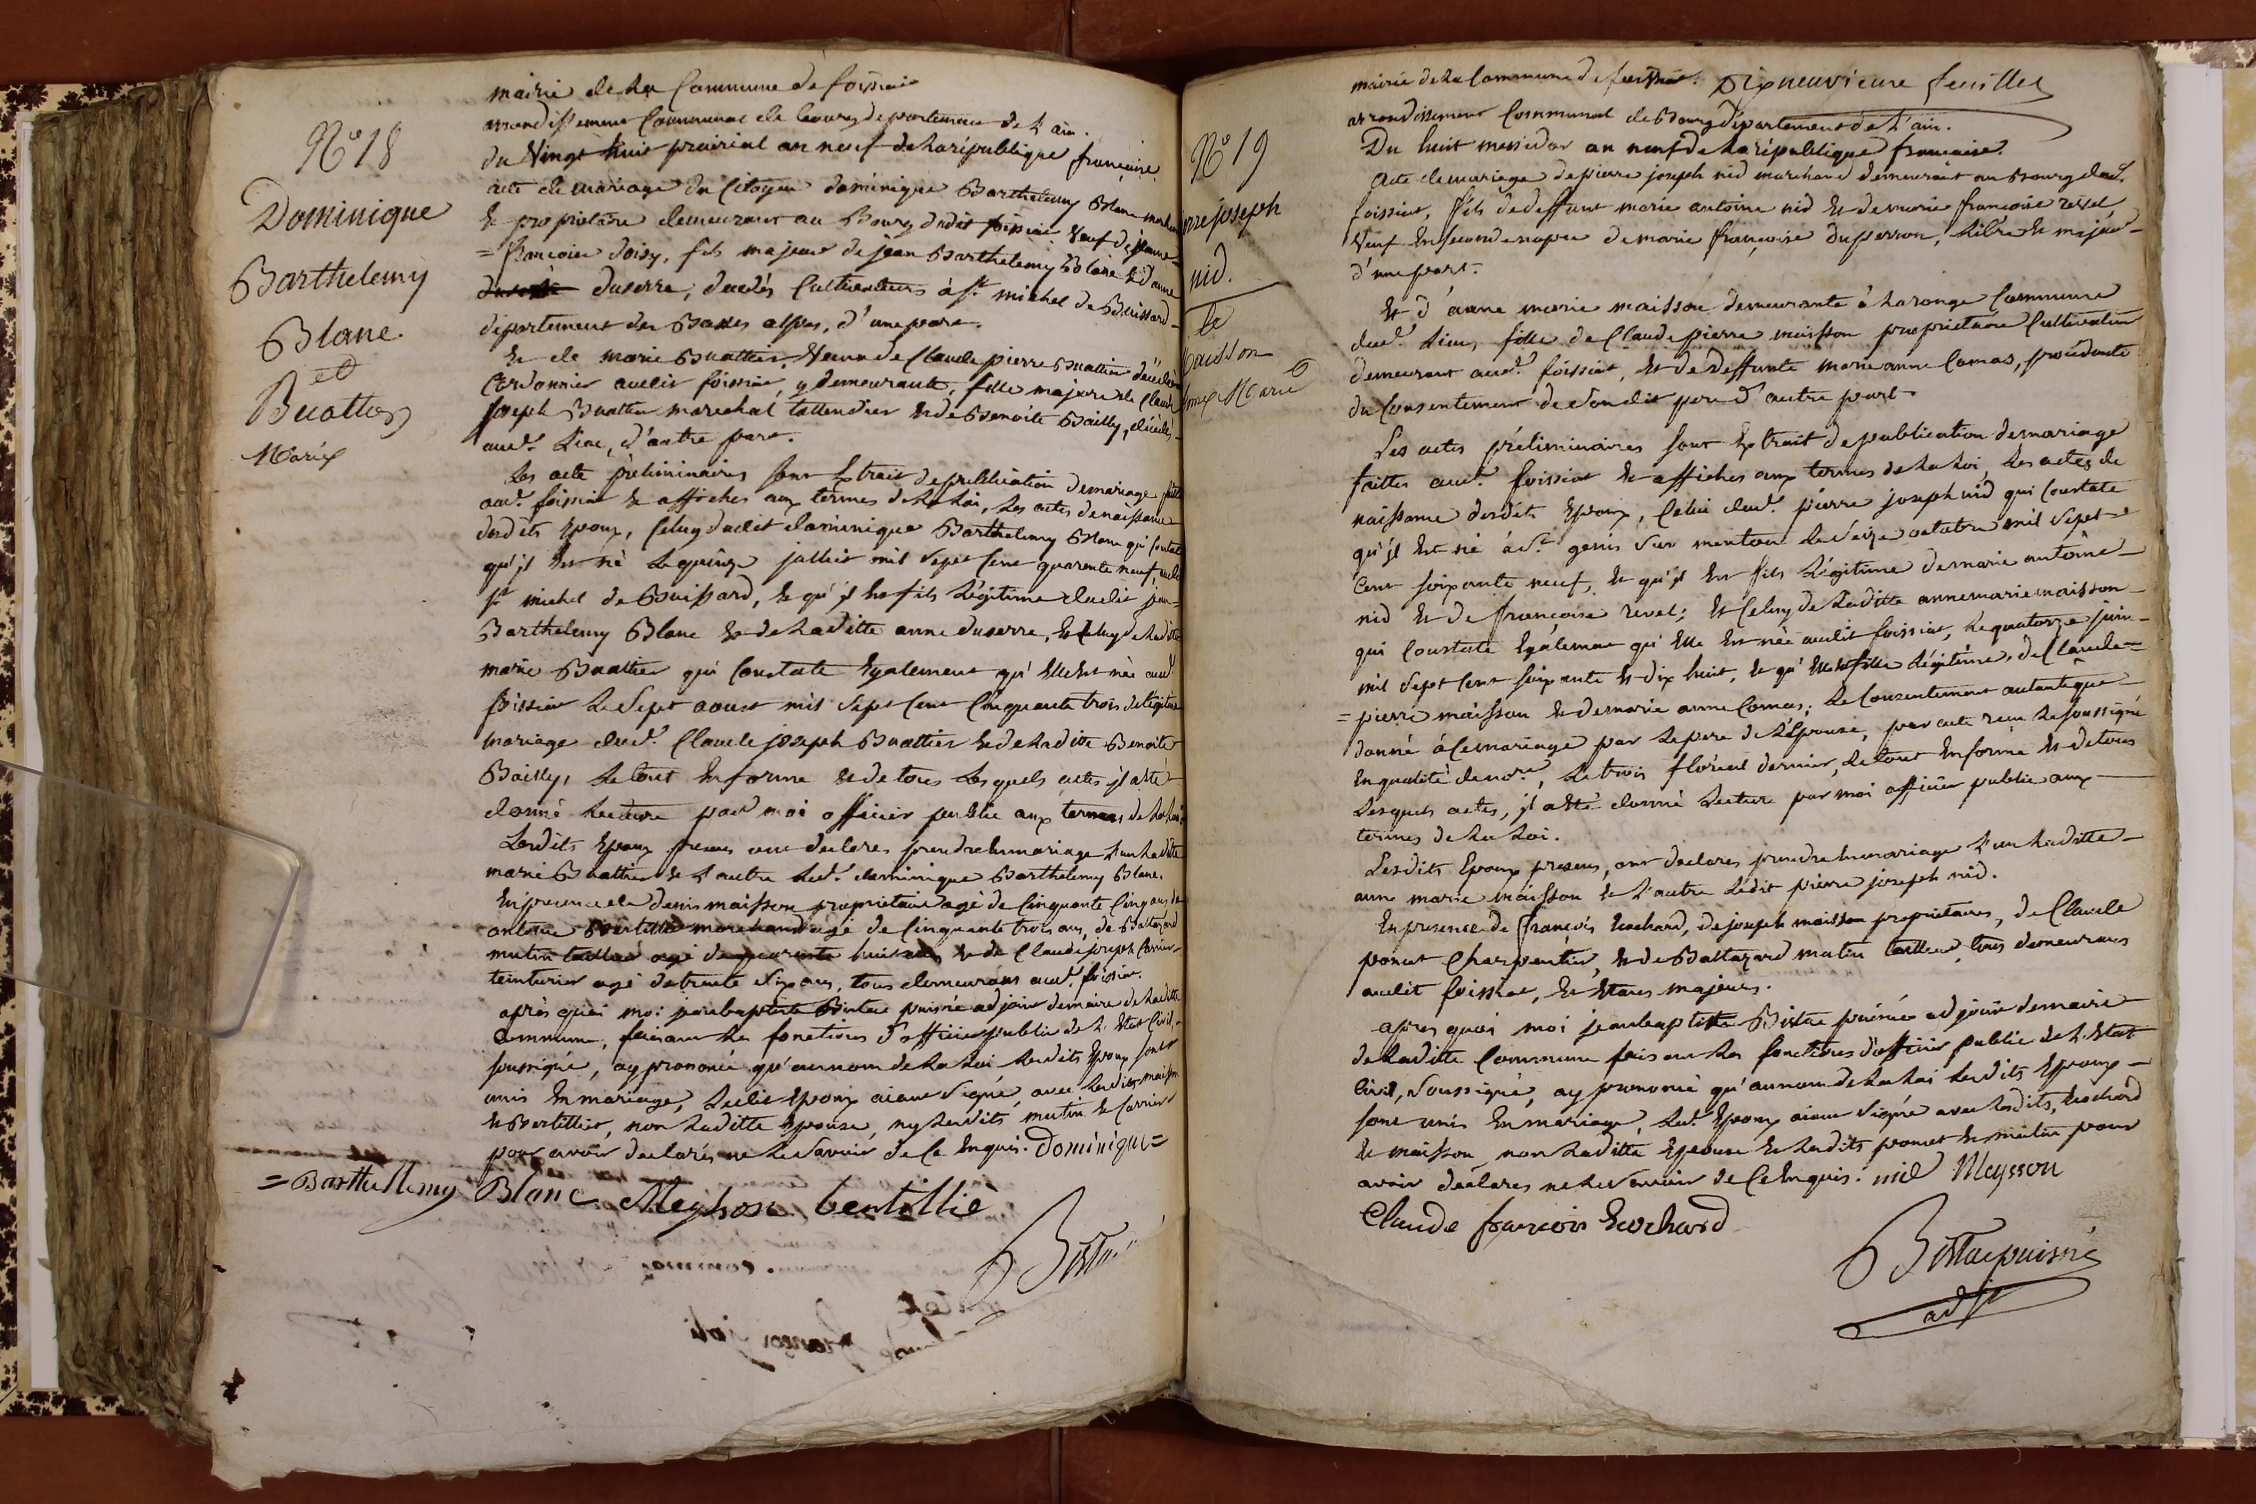 N° 18
Dominique
Barthelemy
Blanc.
et
Buattier
Marie
mairie de la Commune de foissiat
arrondissement Communal de bourg departement de l'ain.
du Vingt huit prairial an neuf de la république françaiṡe.
acte de mariage du Citoyen dominique Barthelemy Blanc
& propriétaire demeurant au Bourg dudit foissiat Veuf de jeanne
= françoise doisy, fils majeur de jean Barthelemy Blanc & d'anne
duserre, décédés Cultivateurs à St michel de Buissard
département des Basses alpes, d'une part.
Et de marie Buattier, Veuve de Claude pierre Buattier décédé
Cordonnier audit foissiat, y demeurante, fille majeure de Claude
joseph Buattier marechal taillendier & de Benoite Bailly, décédés
aud. Lieu, d'autre part.
Les acte préliminaires sont Extrait de publication de mariage faite
aud. foissiat & affiches aux termes de la Loi, Les actes de naissance
desdits Epoux, Celuy dudit dominique Barthelemy Blanc qui Constate
qu'il Est né Le quinze juillet mil Sept Cent quarente neuf, audit
St michel de Buissard, & qu'il Est fils Légitime dudit jean
Barthelemy Blanc & de Laditte anne duserre, & Celuy de Laditte
marie Buattier qui Constate Egalement qu'Elle Est née aud
foissiat Le Sept aoust mil Sept Cent Cinquante trois de Légitime
mariage dud. Claude joseph Buattier & de Laditte Benoite
Bailly, Le tout En forme & de tous Lesquels actes il a Eté
donné Lecture par moi officier public aux termes de la Loi.
Lesdits Epoux presens ont declarés prendre En mariage L'un Laditte
marie Buattier & L'autre Led. dominique Barthelemy Blanc.
En presence de denis maisson propriétaire agé de Cinquante Cinq ans, de
antoine Bertillier marchand agé de Cinquante trois ans, de Baltazard
mutin tailleur agé de quarante huit ans & de Claude joseph Carrier
teinturier agé de trente six ans, tous demeurans aud. foissiat.
après quoi moi jean baptiste Bistac puisné adjoint de maire de Laditte
Commune, faisant Les fonctions d'officier public de L'Etat Civil,
soussigné, ay prononcé qu'au nom de la Loi Lesdits Epoux sont
unis En mariage, Ledit Epoux aiant Signé avec Lesdits maisson
& Bertillier, non Laditte Epouse, ny Lesdits mutin & Carrier
pour avoir declarés ne Le Savoir de Ce Enquis. Dominique =
= Barthellemy Blanc Meysson bertillié
Bistac
N° 19
nid.
&
maisson
mairie de la Commune de foissiat. Dixneuvieme feuillet
arrondissement Communal de Bourg département de L'ain.
Du huit messidor an neuf de la république francaise.
Acte de mariage de pierre joseph nid marchand demeurant au Bourg dud.
foissiat, fils de deffunt marie antoine nid & de marie françoise revel
Veuf En secondes nopces de marie françoise duperron, Libre & majeur
d'une part.
Et d'anne marie maisson demeurante à La ronge Commune
dud. Lieu, fille de Claude pierre maisson propriétaire Cultivateur
demeurant aud. foissiat, & de deffunte marie anne Comas, procédante
du Consentement de Sondit pere d'autre part.
Les actes préliminaires sont Extrait de publication de mariage
faittes aud. foissiat & affiches aux termes de la Loi, Les actes de
naissance desdits Epoux, Celui dud. pierre joseph nid qui Constate
qu'il Est né à St genis Sur menton Le Seize octobre mil Sept
Cent soixante neuf, & qu'il Est fils Légitime de marie antoine
nid & de françoise revel; & Celuy de Laditte anne marie maisson
qui Constate Egalement qu'Elle Est née audit foissiat, Le quatorze juin
mil Sept Cent soixante & dix huit, & qu'Elle Est fille Légitime, de Claude
= pierre maisson & de marie anne Comas; Le Consentement autentique
donné à Ce mariage par Le pere de L'Epouse, par acte reçu Le soussigné
En qualité de nore, Le trois floréal dernier, Le tout En forme & de tous
Lesquels actes, il a Eté donné Lecture par moi officier public aux
termes de la Loi.
Lesdits Epoux presens, ont declarés prendre En mariage L'un Laditte
anne marie maisson & L'autre Ledit pierre joseph nid.
En presence de françois Rochard, de joseph maisson propriétaires, de Claude
poncet Charpentier, & de Baltazard mutin tailleur, tous demeurans
audit foissiat, & Etans majeurs.
après quoi moi jean baptiste Bistac puisné adjoint de maire
de Laditte Commune faisant Les fonctions d'officier public de L'Etat
Civil, Soussigné, ay prononcé qu'au nom de la Loi Lesdits Epoux
sont unis En mariage, Led. Epoux aiant Signé avec Lesdits, Rochard
& maisson, non Laditte Epouse & Lesdits poncet & mutin pour
avoir declarés ne Le Savoir de Ce Enquis. nid Meysson
Claude francois Rochard
Bistac puisné
adjt